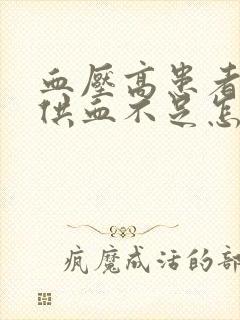 血壓高患者
供血不足怎
疯魔成活的部